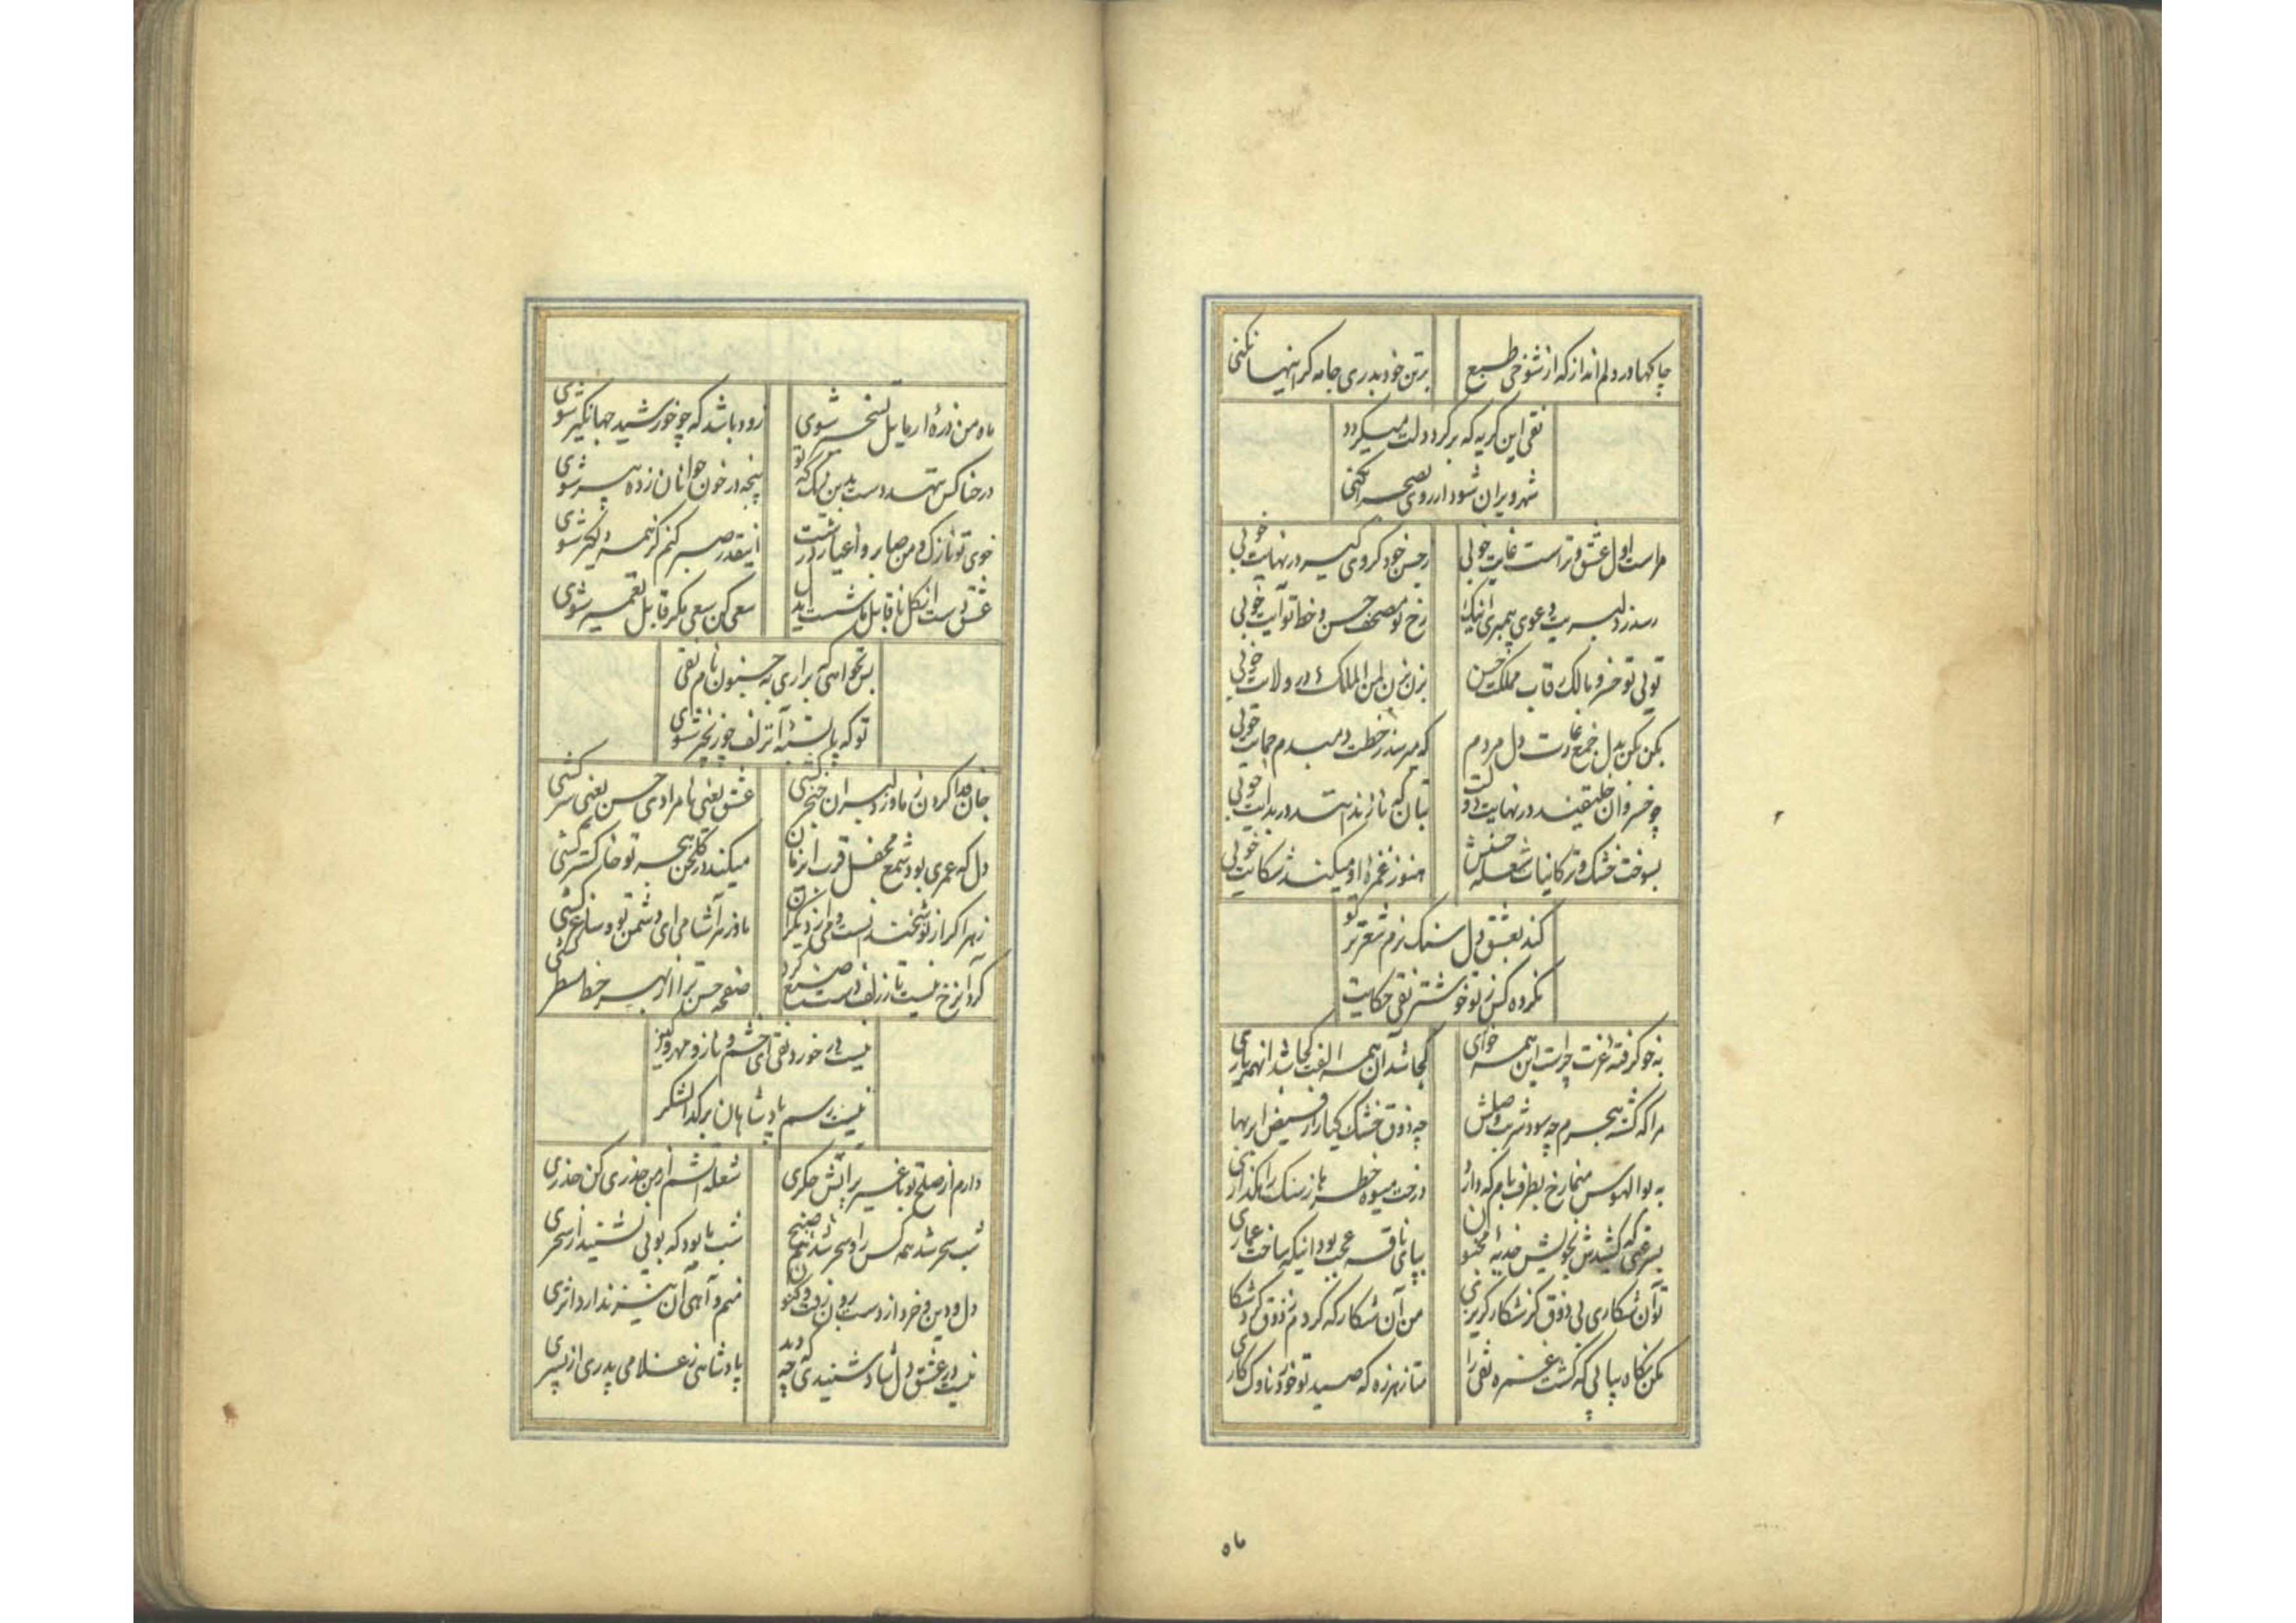 چاکها در دلم انداز که از شوخی طبع
بر تن خود بدری جامه گر اینها نکنی
نقی این گریه که بر گرد دلت میگردد
شهر ویران شود ار روی بصحرا نکنی
مراست اول عشق و تراست غایت خوبی
ز حسن خود گروی گیر در نهایت خوبی
رسد ز دلبریت دعوی پیمبری اینک
رخ تو مصحف حسن و خط تو آیت خوبی
تویی تو خسرو مالک رقاب مملکت حسن
بزن بزن لمن الملک در ولایت خوبی
بکن بکن بدل جمع غارت دل مردم
که میرسد ز خطت دمبدم حمایت خوبی
چو خسروان خلیقند در نهایت دولت
بتان که ناز ندانند در بدایت خوبی
بسوخت خشک و تر کاینات شعله حسنش
هنوز غمزه او میکند شکایت خوبی
کند بعشق دل سنگ نرم شعر تر تو
نکرده کس ز تو خوشتر نقی حکایت
به خو گرفته عزت چراست این همه خواری
کجا شد آن همه الفت کجا شد انهمه یاری
مرا که کشته هجرم چه سود شربت وصلش
چه ذوق خشک گیا را ز فیض ابر بهاری
به بوالهوس منما رخ بطرف بام که دارد
درخت میوه خطرها ز سنک راهگذاری
بسر غمی که کشیدش بخویش جذبه مجنون
بپای ناقه عجب بود اینکه ساخت عماری
تو آن شکاری بی ذوق کز شکار گریزی
من آن شکار که گردم ز ذوق گرد شکاری
مکن نگاه پیاپی که کشت غمزه نقی را
متاز هرزه که صید تو خورد ناوک کاری
ماه من ذره‌ٔ ار مایل تسخیر شوی
زود باشد که چو خورشید جهانگیر شوی
در حنا کس ننهد دست بدین رنگ که تو
پنجه در خون جوانان زده پیر شوی
خوی تو نازک و من صابر و اغیار درشت
اینقدر صبر کنم کز همه دلگیر شوی
عشق دست از گل ناقابل ما شست ایدل
سعی کن سعی مگر قابل تعمیر شوی
بس نخواهی که براری به جنون نام نقی
تو که پا بسته آنزلف چو زنجیر شوی
جان فدا کردن ز ما و ز دلبران خنجر کشی
عشق یعنی نامرادی حسن یعنی سرکشی
دل که عمری بود شمع محفل قرب این زمان
میکند در گلخن هجر تو خاکسترکشی
زهر اگر از تو نبخشندنست و می از دیگران
ما و زهرآشامی ای دشمن تو و ساغرکشی
گرد آنرخ نیست تا ز زلف دست صنع کرد
صفحه حسن ترا از بهر خط مسطرکشی
نیست در خورد نقی ای خشم و ناز و مهر و کین
نیست رسم پادشاهان بر گدا لشکر
دارم از صلح تو با غیر بر آتش جگری
شعله آتشم از من حذری کن حذری
شب سحر شد همه کس را و سحر شد همه صبح
شب ما بود که بویی نشنید از سحری
دل و دین و خرد از دست برون رفت و کنون
منم و آهی آن نیز ندارد اثری
نیست در عشق دل شاد شنیدی که چه دید
پادشاهی ز غلامی پدری از پسری
ماه